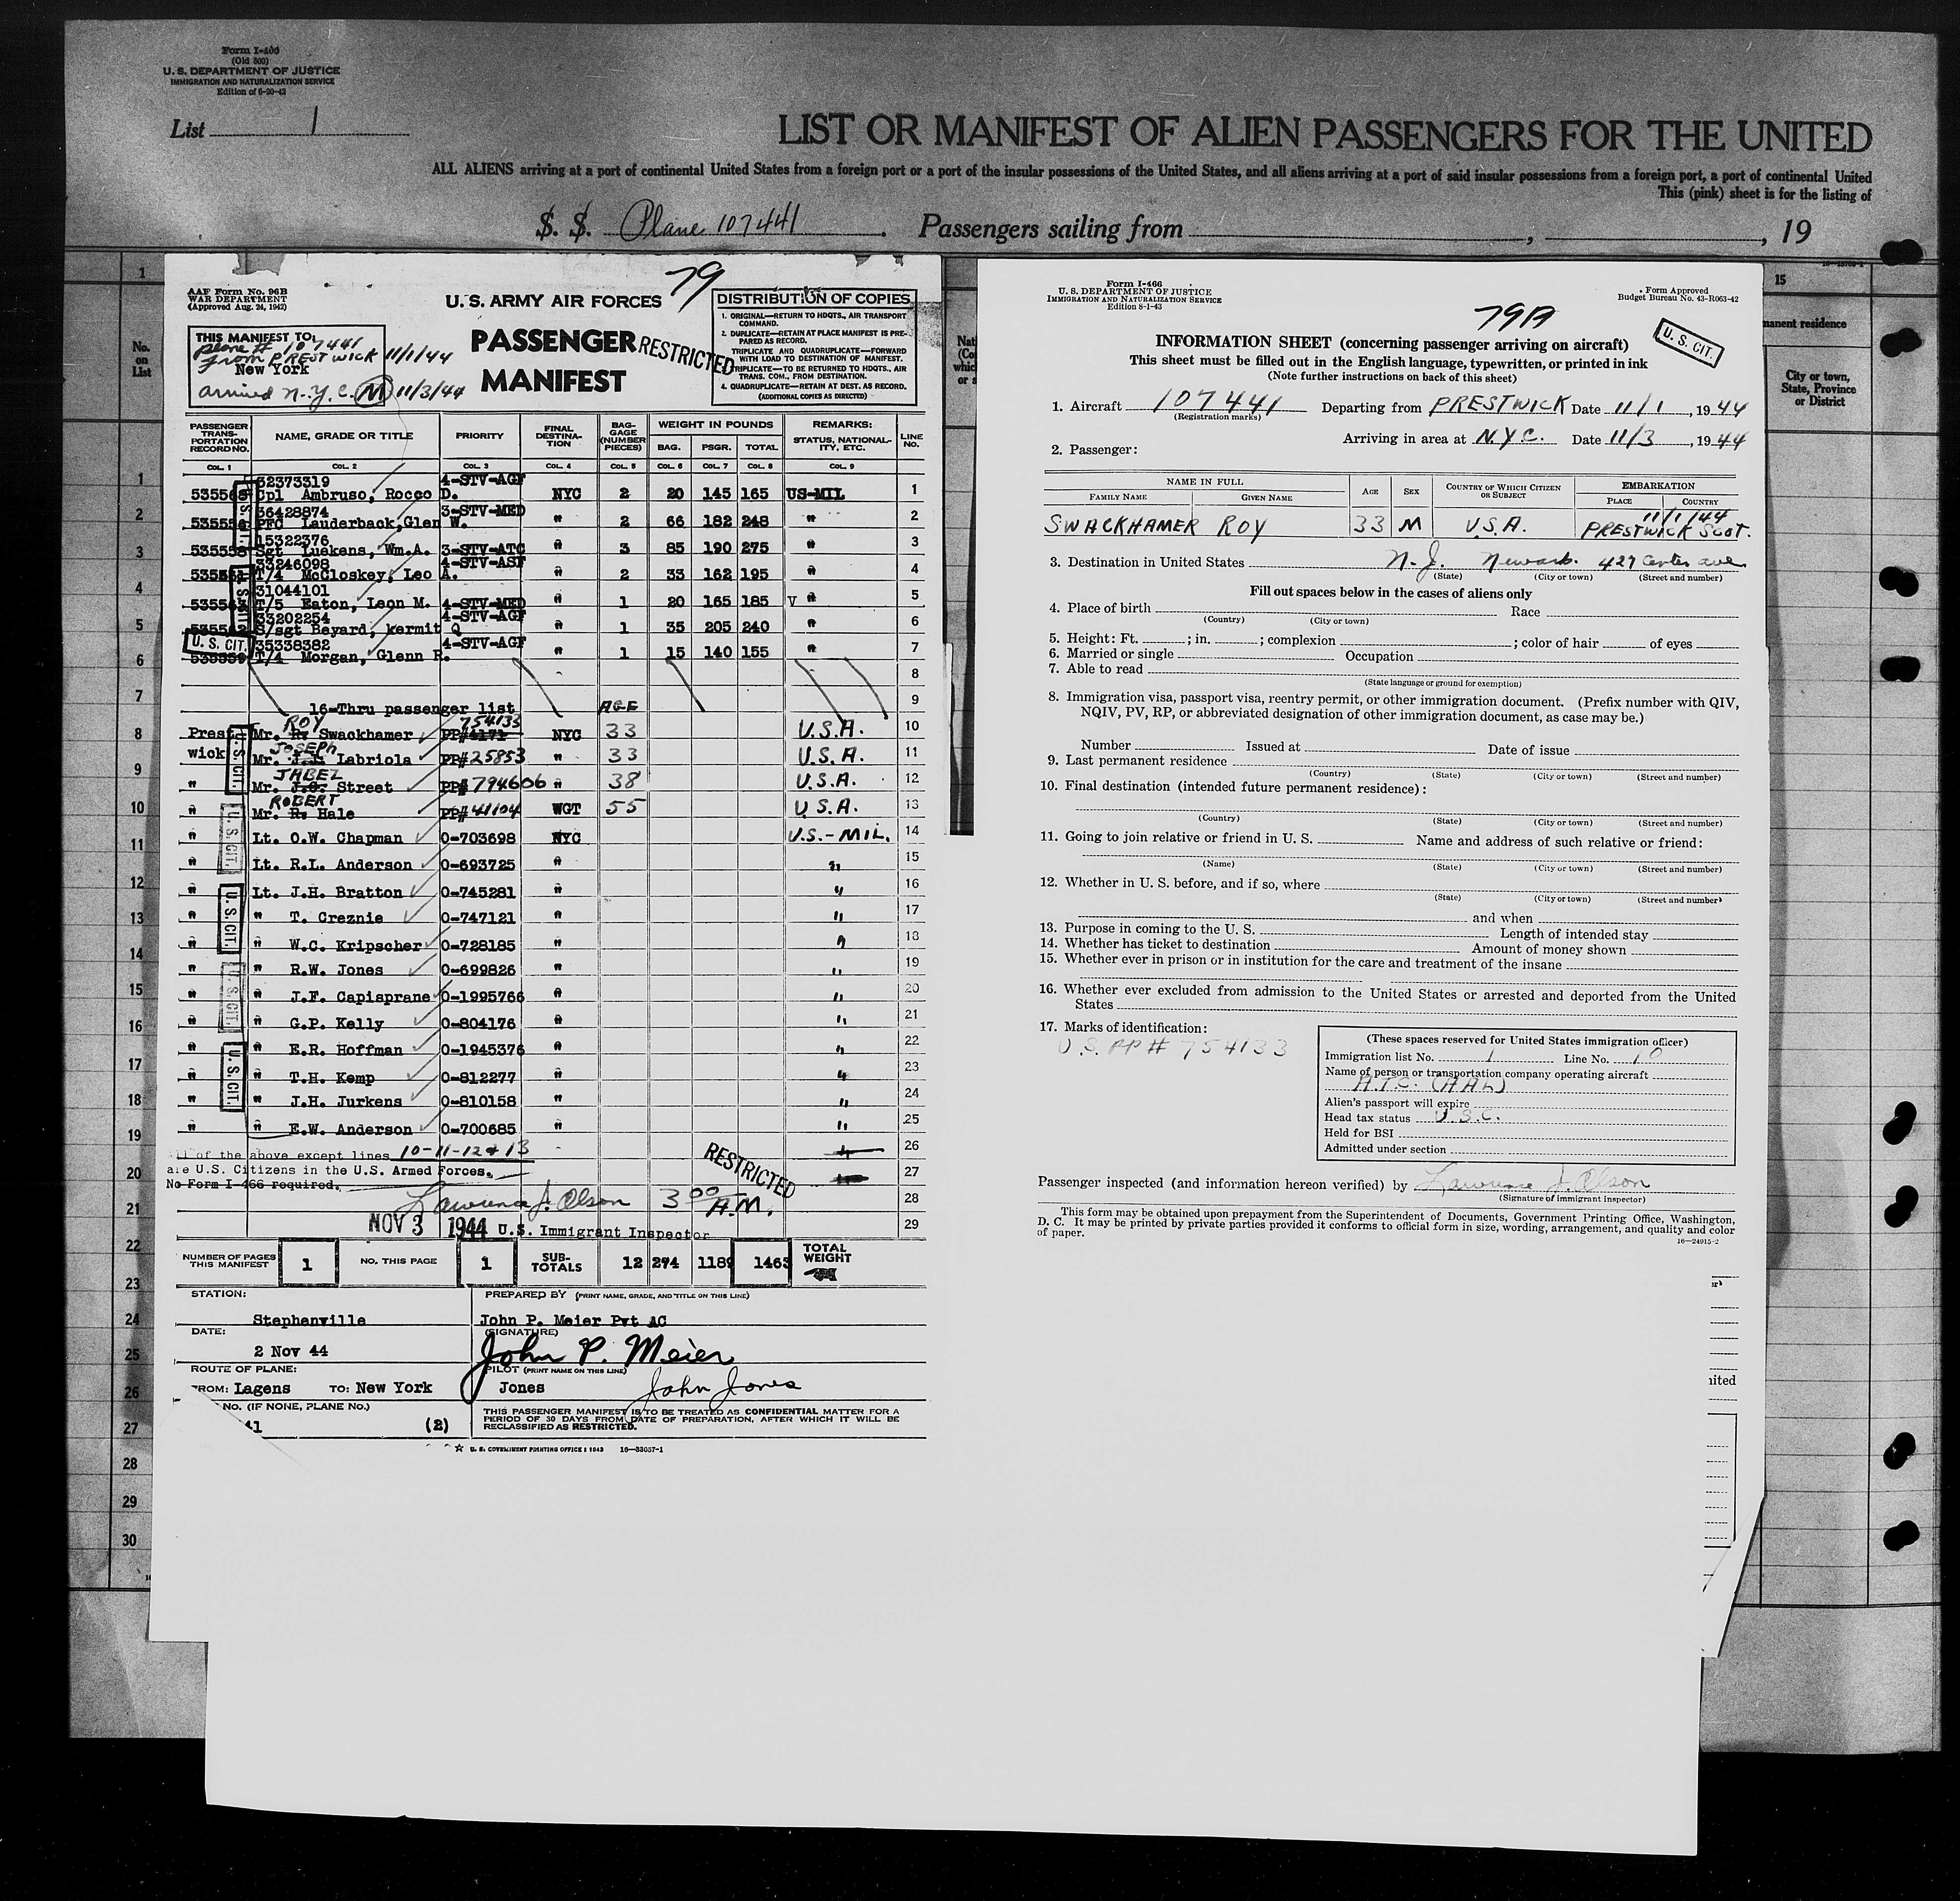 Form I-400
(Old 500)
U. S. DEPARTMENT OF JUSTICE
IMMIGRATION AND NATURALIZATION SERVICE
Edition of 6-20-42
List 1
LIST OR MANIFEST OF ALIEN PASSENGERS FOR THE UNITED
ALL ALIENS arriving at a port of continental United States from a foreign port or a port of the insular possessions of the United States, and all aliens arriving at a port of said insular possessions from a foreign port, a port of continental United
This (pink) sheet is for the listing of
S. S. Plane 107441. Passengers sailing from , , 19
No. on List
1
2
3
4
5
6
7
8
9
10
11
12
13
14
15
16
17
18
19
20
21
22
23
24
25
26
27
28
29
30
79
AAF Form No. 96B
WAR DEPARTMENT
(Approved Aug. 24, 1942)
U. S. ARMY AIR FORCES
PASSENGER
MANIFEST
RESTRICTED
THIS MANIFEST TO:
plane # 107441
from PRESTWICK 11/1/44
New York
arrived N.Y.C. M 11/3/44
DISTRIBUTION OF COPIES
1. ORIGINAL—RETURN TO HDQTS., AIR TRANSPORT COMMAND.
2. DUPLICATE—RETAIN AT PLACE MANIFEST IS PREPARED AS RECORD.
TRIPLICATE AND QUADRUPLICATE—FORWARD WITH LOAD TO DESTINATION OF MANIFEST.
TRIPLICATE—TO BE RETURNED TO HDQTS., AIR TRANS. COM., FROM DESTINATION.
4. QUADRUPLICATE—RETAIN AT DEST. AS RECORD.
(ADDITIONAL COPIES AS DIRECTED)
PASSENGER TRANSPORTATION RECORD NO. NAME, GRADE OR TITLE PRIORITY FINAL DESTINATION BAGGAGE (NUMBER PIECES) WEIGHT IN POUNDS BAG. PSGR. TOTAL REMARKS: STATUS, NATIONALITY, ETC. LINE NO.
COL. 1 COL. 2 COL. 3 COL. 4 COL. 5 COL. 6 COL. 7 COL. 8 COL. 9
32373319 4-STV-AGF
Cpl Ambruso, Rocco D. NYC 2 20 145 165 US-MIL 1
36428874 3-STV-MED
PFC Lauderback, Glen W. " 2 66 182 248 " 2
15322376
535558 Sgt Luekens, Wm.A. 3-STV-ATC " 3 85 190 275 " 3
33246098 4-STV-ASF
T/4 McCloskey, Leo A. " 2 33 162 195 " 4
31044101
T/5 Eaton, Leon M. 4-STV-MED " 1 20 165 185 V " 5
33202254 4-STV-AGF
S/sgt Beyard, kermit Q " 1 35 205 240 " 6
U. S. CIT. 35338382 4-STV-AGF
535559 T/4 Morgan, Glenn R. " 1 15 140 155 " 7
8
16-Thru passenger list AGE 9
ROY 754133
Prest Mr. R. Swackhamer PP#4171 NYC 33 U.S.A. 10
JOSEPH
wick Mr. Labriola PP#25853 " 33 U.S.A. 11
JABEZ
" Mr. J.C. Street PP#794606 " 38 U.S.A. 12
ROBERT
" Mr. R. Hale PP#41104 WGT 55 U.S.A. 13
" Lt. O.W. Chapman O-703698 NYC U.S.-MIL. 14
" Lt. R.L. Anderson O-693725 " " 15
" Lt. J.H. Bratton O-745281 " " 16
" " T. Creznie O-747121 " " 17
" " W.C. Kripscher O-728185 " " 18
" " R.W. Jones O-699826 " " 19
" " J.F. Capisprane O-1995766 " " 20
" " G.P. Kelly O-804176 " " 21
" " E.R. Hoffman O-1945376 " " 22
" " T.H. Kemp O-812277 " " 23
" " J.H. Jurkens O-810158 " " 24
" " E.W. Anderson O-700685 " " 25
U. S. CIT.
U. S. CIT.
U. S. CIT.
U. S. CIT.
U. S. CIT.
All of the above except lines 10-11-12 & 13 26
are U.S. Citizens in the U.S. Armed Forces. RESTRICTED 27
No Form I-466 required.
Lawrence J. Olson 3 00 A.M. 28
NOV 3 1944 U.S. Immigrant Inspector 29
NUMBER OF PAGES THIS MANIFEST 1 NO. THIS PAGE 1 SUB-TOTALS 12 274 1189 1463 TOTAL WEIGHT
STATION: PREPARED BY (PRINT NAME, GRADE, AND TITLE ON THIS LINE)
Stephenville John P. Meier Pvt AC
DATE: (SIGNATURE)
2 Nov 44 John P. Meier
ROUTE OF PLANE: PILOT (PRINT NAME ON THIS LINE)
FROM: Lagens TO: New York Jones John Jones
NO. (IF NONE, PLANE NO.)
41 (2)
THIS PASSENGER MANIFEST IS TO BE TREATED AS CONFIDENTIAL MATTER FOR A
PERIOD OF 30 DAYS FROM DATE OF PREPARATION, AFTER WHICH IT WILL BE
RECLASSIFIED AS RESTRICTED.
☆ U. S. GOVERNMENT PRINTING OFFICE : 1943 16—33057-1
Form I-466
U. S. DEPARTMENT OF JUSTICE
IMMIGRATION AND NATURALIZATION SERVICE
Edition 8-1-43
Form Approved
Budget Bureau No. 43-R063-42
79A
U. S. CIT.
INFORMATION SHEET (concerning passenger arriving on aircraft)
This sheet must be filled out in the English language, typewritten, or printed in ink
(Note further instructions on back of this sheet)
1. Aircraft 107441 Departing from PRESTWICK Date 11/1, 1944
(Registration marks)
Arriving in area at N.Y.C. Date 11/3, 1944
2. Passenger:
NAME IN FULL AGE SEX COUNTRY OF WHICH CITIZEN OR SUBJECT EMBARKATION
FAMILY NAME GIVEN NAME PLACE COUNTRY
11/1/44
SWACKHAMER ROY 33 M U.S.A. PRESTWICK SCOT.
3. Destination in United States N.J. Newark. 427 Center ave.
(State) (City or town) (Street and number)
Fill out spaces below in the cases of aliens only
4. Place of birth Race
(Country) (City or town)
5. Height: Ft. ; in. ; complexion ; color of hair of eyes
6. Married or single Occupation
7. Able to read
(State language or ground for exemption)
8. Immigration visa, passport visa, reentry permit, or other immigration document. (Prefix number with QIV,
NQIV, PV, RP, or abbreviated designation of other immigration document, as case may be.)
Number Issued at Date of issue
9. Last permanent residence
(Country) (State) (City or town) (Street and number)
10. Final destination (intended future permanent residence):
(Country) (State) (City or town) (Street and number)
11. Going to join relative or friend in U. S. Name and address of such relative or friend:
(Name) (State) (City or town) (Street and number)
12. Whether in U. S. before, and if so, where
(State) (City or town) (Street and number)
and when
13. Purpose in coming to the U. S. Length of intended stay
14. Whether has ticket to destination Amount of money shown
15. Whether ever in prison or in institution for the care and treatment of the insane
16. Whether ever excluded from admission to the United States or arrested and deported from the United
States
17. Marks of identification:
U.S. PP # 754133
(These spaces reserved for United States immigration officer)
Immigration list No. 1 Line No. 10
Name of person or transportation company operating aircraft
A.T.C. (AAL)
Alien's passport will expire
Head tax status U.S.C.
Held for BSI
Admitted under section
Passenger inspected (and information hereon verified) by Lawrence J. Olson
(Signature of immigrant inspector)
This form may be obtained upon prepayment from the Superintendent of Documents, Government Printing Office, Washington,
D. C. It may be printed by private parties provided it conforms to official form in size, wording, arrangement, and quality and color
of paper.
16—24915-2
15
manent residence
City or town, State, Province or District